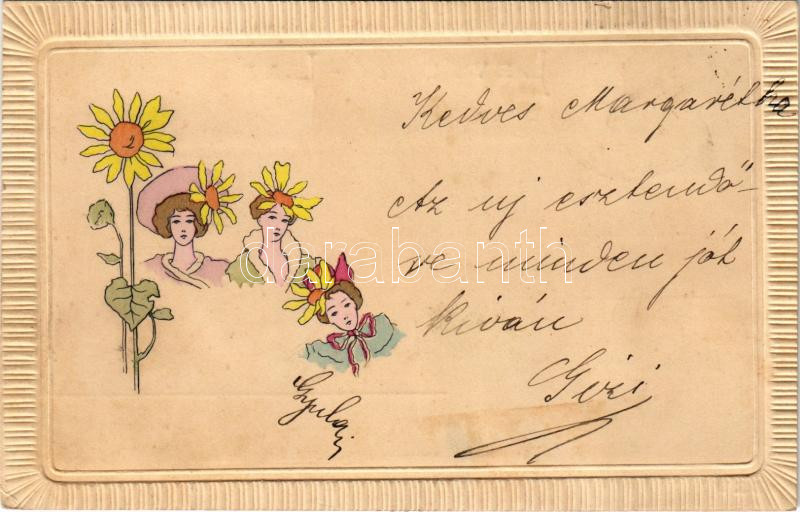 2
Kedves Margarétka
Az uj esztendő-
re minden jót
kiván
Gizi
darabanth